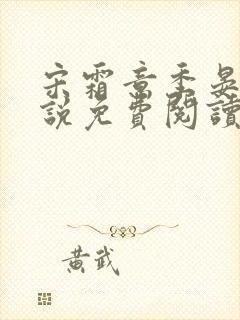 宋霜章季晏
說免費閱讀
黃武